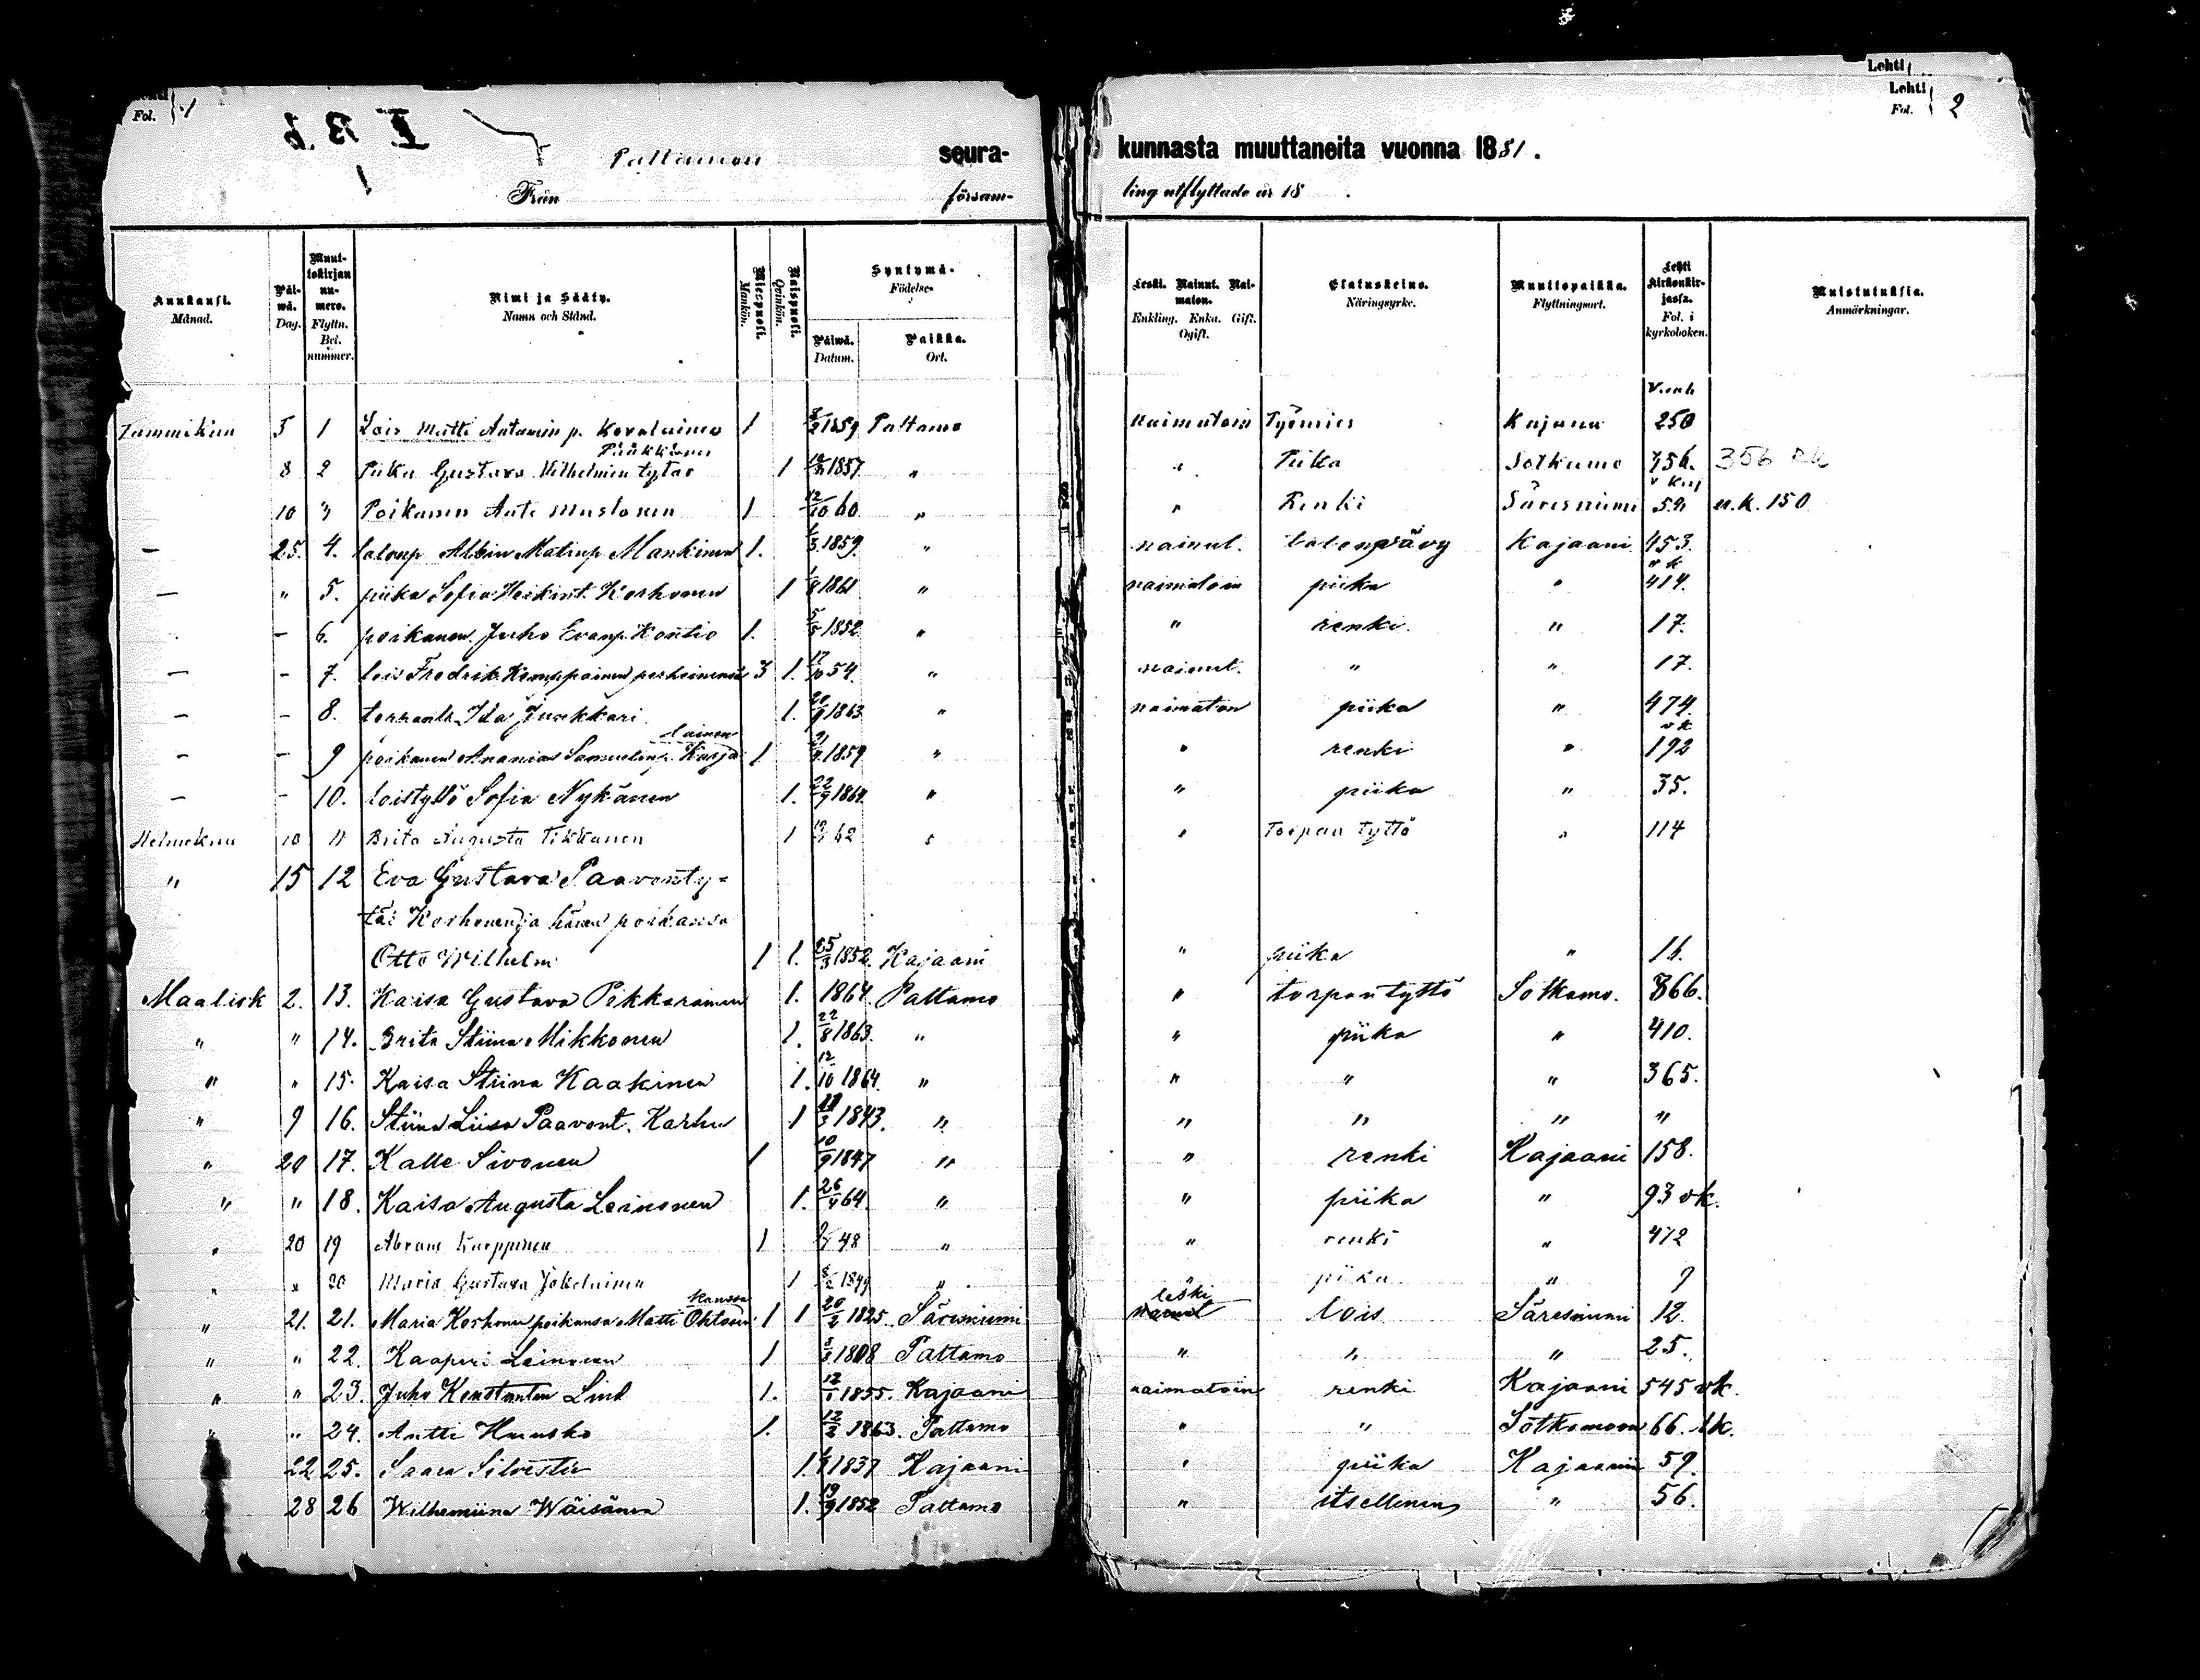 Fol. 1
I B b.
Paltamon seura- kunnasta muuttaneita vuonna 1881.
Från försam- ling utflyttade år 18 .
Lehti
Lehti Fol. 2
Kuukausi. Månad. Päi-wä. Dag. Muut-tokirjan nu-mero. Flyttn. Bet. nummer. Nimi ja Sääty. Namn och Stånd. Miespuoli. Mankön. Naispuoli. Qvinkön. Syntymä- Födelse- Päiwä. Datum. Paikka. Ort. Leski. Nainut. Nai-maton. Enkling. Enka. Gift. Ogift. Elatuskeino. Näringsyrke. Muuttopaikka. Flyttningsort. Lehti kirkonkir-jassa. Fol. i kyrkoboken. Muistutuksia. Anmärkningar.
Tammikuu 5 1 Lois Matti Antamin p. Kovalainen 1 1859 Paltamo naimatoin Työmies Kajana 250
Pääkköner
8 2 Piika Gustava Wilhelmin tytär 1 1857 " " Piika Sotkamo 356. 356 RK
10 3 Poikanen Anti Mustonen 1 12/10 60 " " Renki Säresniemi 59 u.k. 150
— 25. 4. talonp Albin Matinp Mankinen 1. 1859. " nainut. talonpävy Kajaani 453.
— " 5. piika Sofia Heikint. Korhonen 1 1861 " naimatoin piika " 414.
— 6. poikanen Juho Evanp. Kontio 1. 5/5 1852 " " renki. " 17.
— — 7. lois Fredrik Kemppainen perheinensä 3 1. 17/10 54. " nainut. " " 17.
— — 8. torpantt. Ida Junkkari 1. 1863 " naimaton piika " 474.
lainen vk
— — 9 poikanen Ananias Samuelinp. Karja 1 1859 " " renki " 192
— — 10. loistyttö Sofia Nykänen 1. 22/9 1864 " " piika " 35.
Helmikuu 10 11 Brita Augusta Tikkanen 1 62 " " Torpan tyttö " 114
" 15 12 Eva Gustava Paavonty-
tär Korhonen ja hänen poikansa
Otto Wilhelm 1 1. 25/3 1852. Kajaani " piika " 11.
Maalisk 2. 13. Kaisa Gustava Pikkarainen 1. 1864. Paltamo " torpantyttö Sotkamo. 366.
" " 14. Brita Stiina Mikkonen 1. 22/8 1863. " " piika " 410.
" " 15. Kaisa Stiina Kaakinen 1. 12/10 1864. " " " " 365.
" 9 16. Stiina Liisa Paavont. Karhu 1 1843. " " " " "
" 20 17. Kalle Sivonen 1 10/9 1847 " " renki Kajaani 158.
" " 18. Kaisa Augusta Leinonen 1. 26/4 64. " " piika " 93 vk.
" 20 19 Abram Karppinen 1 48 " " renki " 472
" " 20 Maria Gustava Jokelainen 1 " " piika " 9
kanssa leski
" 21. 21. Maria Korhonen poikansa Matti Ohtosen 1 1 20/2 1825. Säresniemi nainut lois Säresniemi 12.
" " 22. Kaapiri Leinonen 1 1808 Paltamo " " " 25.
" " 23. Juho Konstantin Lind 1. 12/1 1855. Kajaani naimatoin renki Kajaani 545 vk.
" " 24. Antti Huusko 1. 12/2 1863. Paltamo " " Sotkamoon 66. tk.
22 25. Saara Silvester 1. 1837 Kajaani " piika Kajaanin 59.
28 26 Wilhemiina Wäisänen 1. 19/9 1852 Paltamo " itsellinen " 56.